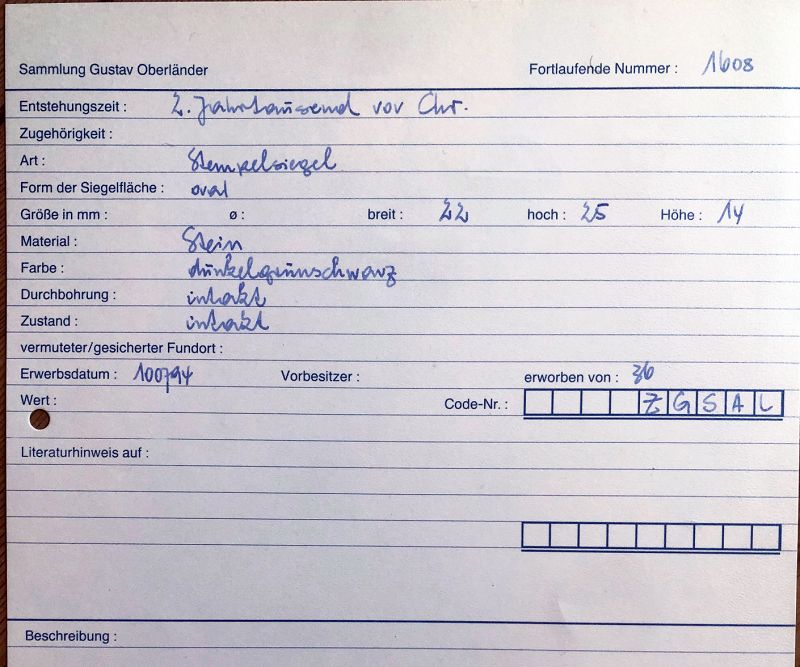 Sammlung Gustav Oberländer Fortlaufende Nummer : 1608
Entstehungszeit : 2. Jahrtausend vor Chr.
Zugehörigkeit :
Art : Stempelsiegel
Form der Siegelfläche : oval
Größe in mm : ø : breit : 22 hoch : 25 Höhe : 14
Material : Stein
Farbe : dunkelgrünschwarz
Durchbohrung : intakt
Zustand : intakt
vermuteter/gesicherter Fundort :
Erwerbsdatum : 100794 Vorbesitzer : erworben von : 36
Wert : Code-Nr. : ZGSAL
Literaturhinweis auf :
Beschreibung :